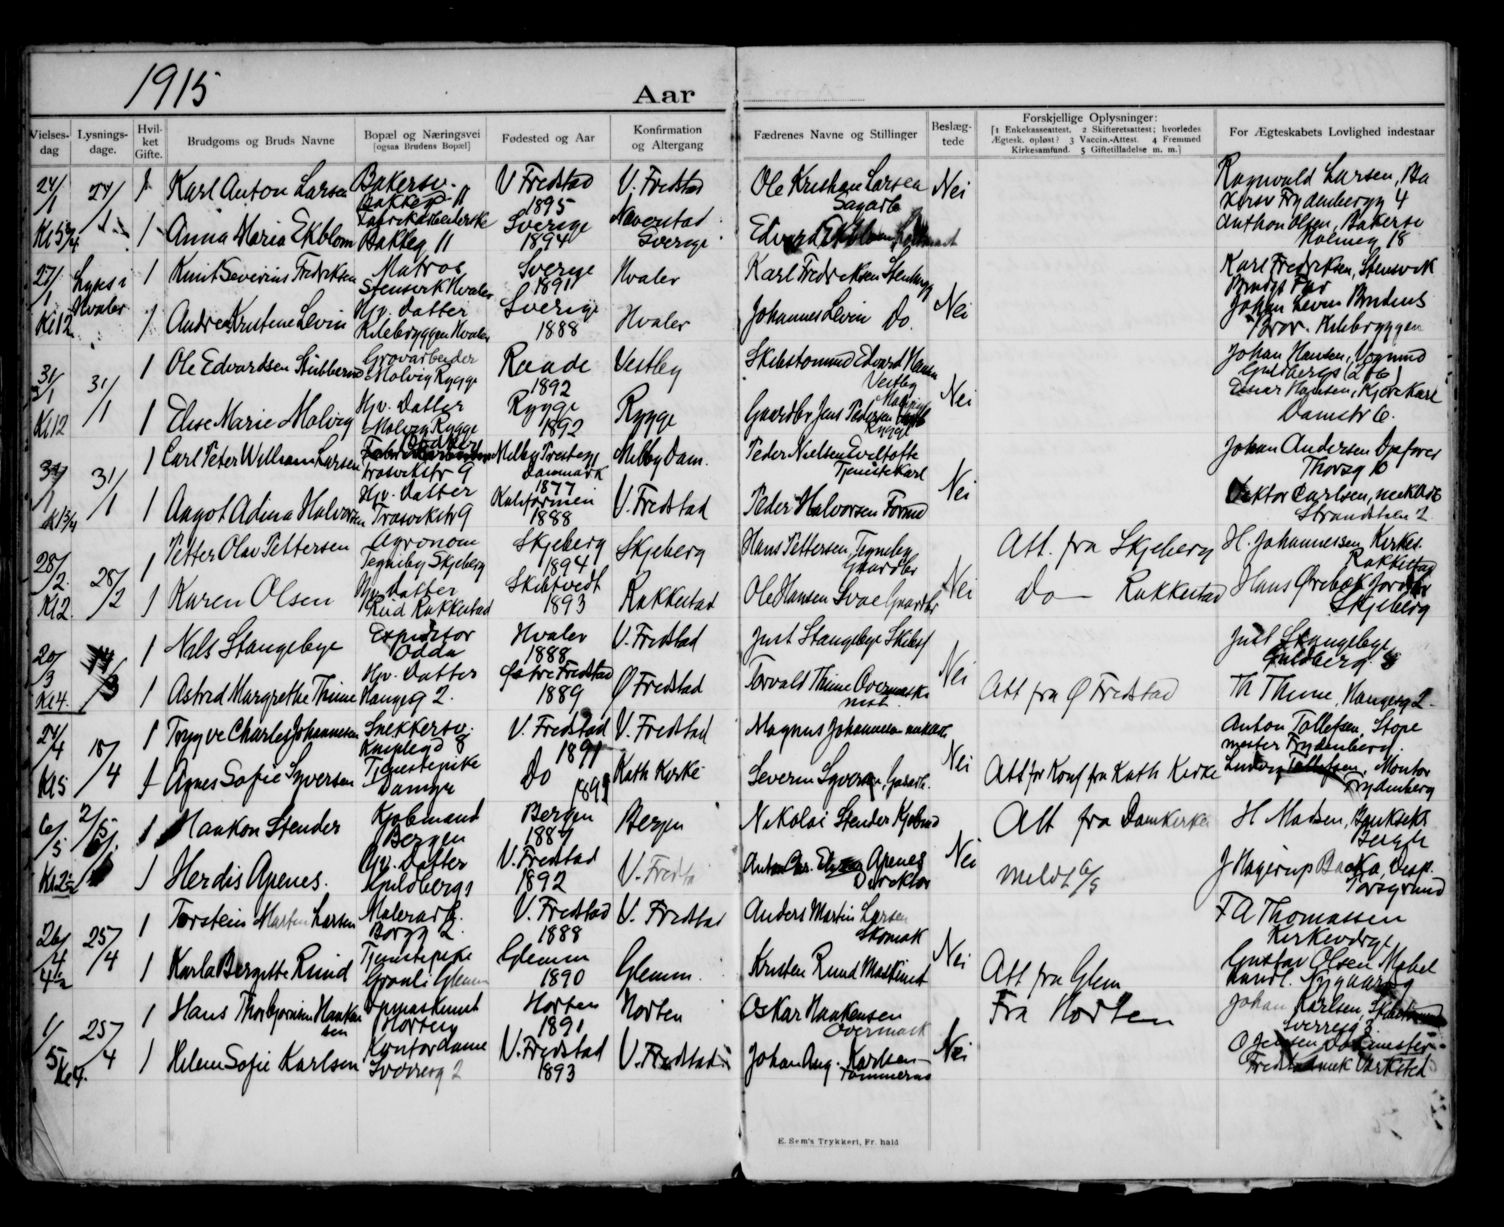 1915
Aar
Vielses-dag
Lysnings-dage.
Hvilket Gifte.
Brudgoms og Bruds Navne
Bopæl og Næringsvei
[ogsaa Brudens Bopæl]
Fødested og Aar
Konfirmation og Altergang
Fædrenes Navne og Stillinger
Beslægtede
Forskjellige Oplysninger:
[1 Enkekasseattest. 2 Skifteretsattest; hvorledes
Ægtesk. opløst? 3 Vaccin.-Attest. 4 Fremmed
Kirkesamfund. 5 Giftetilladelse m. m.]
For Ægteskabets Lovlighed indestaar
24/1 24/1 1 Karl Anton Larsen Bakersv. Bakkeg 11 V Fredstad 1895 V. Fredstad Ole Kristian Larsen Sagarb Nei Ragnvald Larsen, Ba
kersv Frydenbergg 4
1 Anna Maria Ekblom Fabrikarbeiderske Bakkeg 11 Sverige 1894 Naverstad Sverige Anthon Olsen, Bakersv
Holmeg 18
27/1 Lyses i Hvaler 1 Knut Severius Fredriksen Matros Stensvik Hvaler Sverige 1891 Hvaler Karl Fredriksen Stensvig Nei Karl Fredriksen, Stensvik
Brudgs Far
Kl 12 1 Andrea Kristine Levin Hjv. Datter Kilebryggen Hvaler Sverige 1888 Hvaler Johannes Levin Do. Johan Levin Brudens
Bror. Kilebryggen
31/1 31/1 1 Ole Edvardsen Stubberud Grovarbeider Molvig Rygge Raade 1892 Vestby Skibstømmd Edvard Hansen Vestby Nei Johan Hansen, Vognmd
Guldbergs
Kl 12 1 Elise Marie Molvig Hjv. Datter Molvig Rygge Rygge 1892 Rygge Gaardbr Jens Pedersen Rygge Einar Hansen, Kjørekarl
Damstr 6.
31/1 31/1 1 Carl Peter William Larsen Trosvikstr 9 Melby Prestegj Danmark 1877 Melby Dam. Peder Nielsen Tjenstekarl Nei Johan Andersen
Thorsg 10
1 Aagot Adina Halvorsen Hjv. Datter Trosvikstr 9 Kalifornien 1888 V. Fredstad Peder Halvorsen Formd Viktor Carlsen, mekarb
Strandstien 2
28/2 28/2 1 Petter Olav Pettersen Agronom Tegneby Skjeberg Skjeberg 1894 Skjeberg Hans Pettersen, Tegneby Gaardbr Nei Att. fra Skjeberg H. Johannessen Kirkes.
Rakkestad
Kl 2. 1 Karen Olsen Hjv. Datter Rud Rakkestad Skiptvedt 1893 Rakkestad Ole Hansen Svae Gaardbr Do — Rakkestad Hans Ørebæk Jordbr
Skjeberg
20/3 1 Nils Stangebye Expeditør Odda Hvaler 1888 V. Fredstad Just Stangebye Skibsf Nei Just Stangebye
Guldberg
Kl 4. 1 Astrid Margrethe Thime Hjv. Datter Haugeg 2. Østre Fredstad 1889 Ø Fredstad Torvald Thime Overmaskinist Att fra Ø Fredstad Th Thime, Haugeg 2
24/4 18/4 1 Trygve Charles Johannesen Snekkersv. Kniplegd 8 V. Fredstad 1891 V. Fredstad Magnus Johannesen mekarb Nei Anton Tollefsen, Støpe
mester Frydenberg.
Kl 5 1 Agnes Sofie Syversen Tjenestepike Damgn Do Kath Kirke Severin Syversen, Att for Konf fra Kath Kirke Ludvig Tollefsen, Montør
Frydenberg
6/5 2/5 1 Haakon Stender Kjøbmand Bergen Bergen 1887 Bergen Nikolai Stender Kjøbmd Nei Att fra Domkirke H Madsen, Banksekt
Bergen
1 Herdis Apenes. Hjv. Datter Guldbergs V. Fredstad 1892 V. Fredsta Apenes Direktør meldt 6/5 J Hagerup Backa, Disp.
Torsgrund
26/4 25/4 1 Torstein Marten Larsen Malerarb. Borgg 2. V. Fredstad 1888 V. Fredstad Anders Martin Larsen Skomak Nei F A Thomassen
Kirkeverge
1 Karla Bergitte Rund Tjenestepike Graali Glemm Glemm 1890 Glemm. Kristen Rund Maskinist Att fra Glem Gustav Olsen, Møbel
handl. Nygaardsg
1/5 25/4 1 Hans Thorbjørnsen Haakensen Horten Horten 1891 Horten Oskar Haakensen Overmask Nei Fra Horten Johan Karlsen,
Sverresg 3.
Kl 4. 1 Helene Sofie Karlsen Kontordame Sverreg 2 V. Fredstad 1893 V. Fredstad Johan Aug. Karlsen Tømmerm
Fredrikstad mek Verksted
E. Sem's Trykkeri, Fr. hald